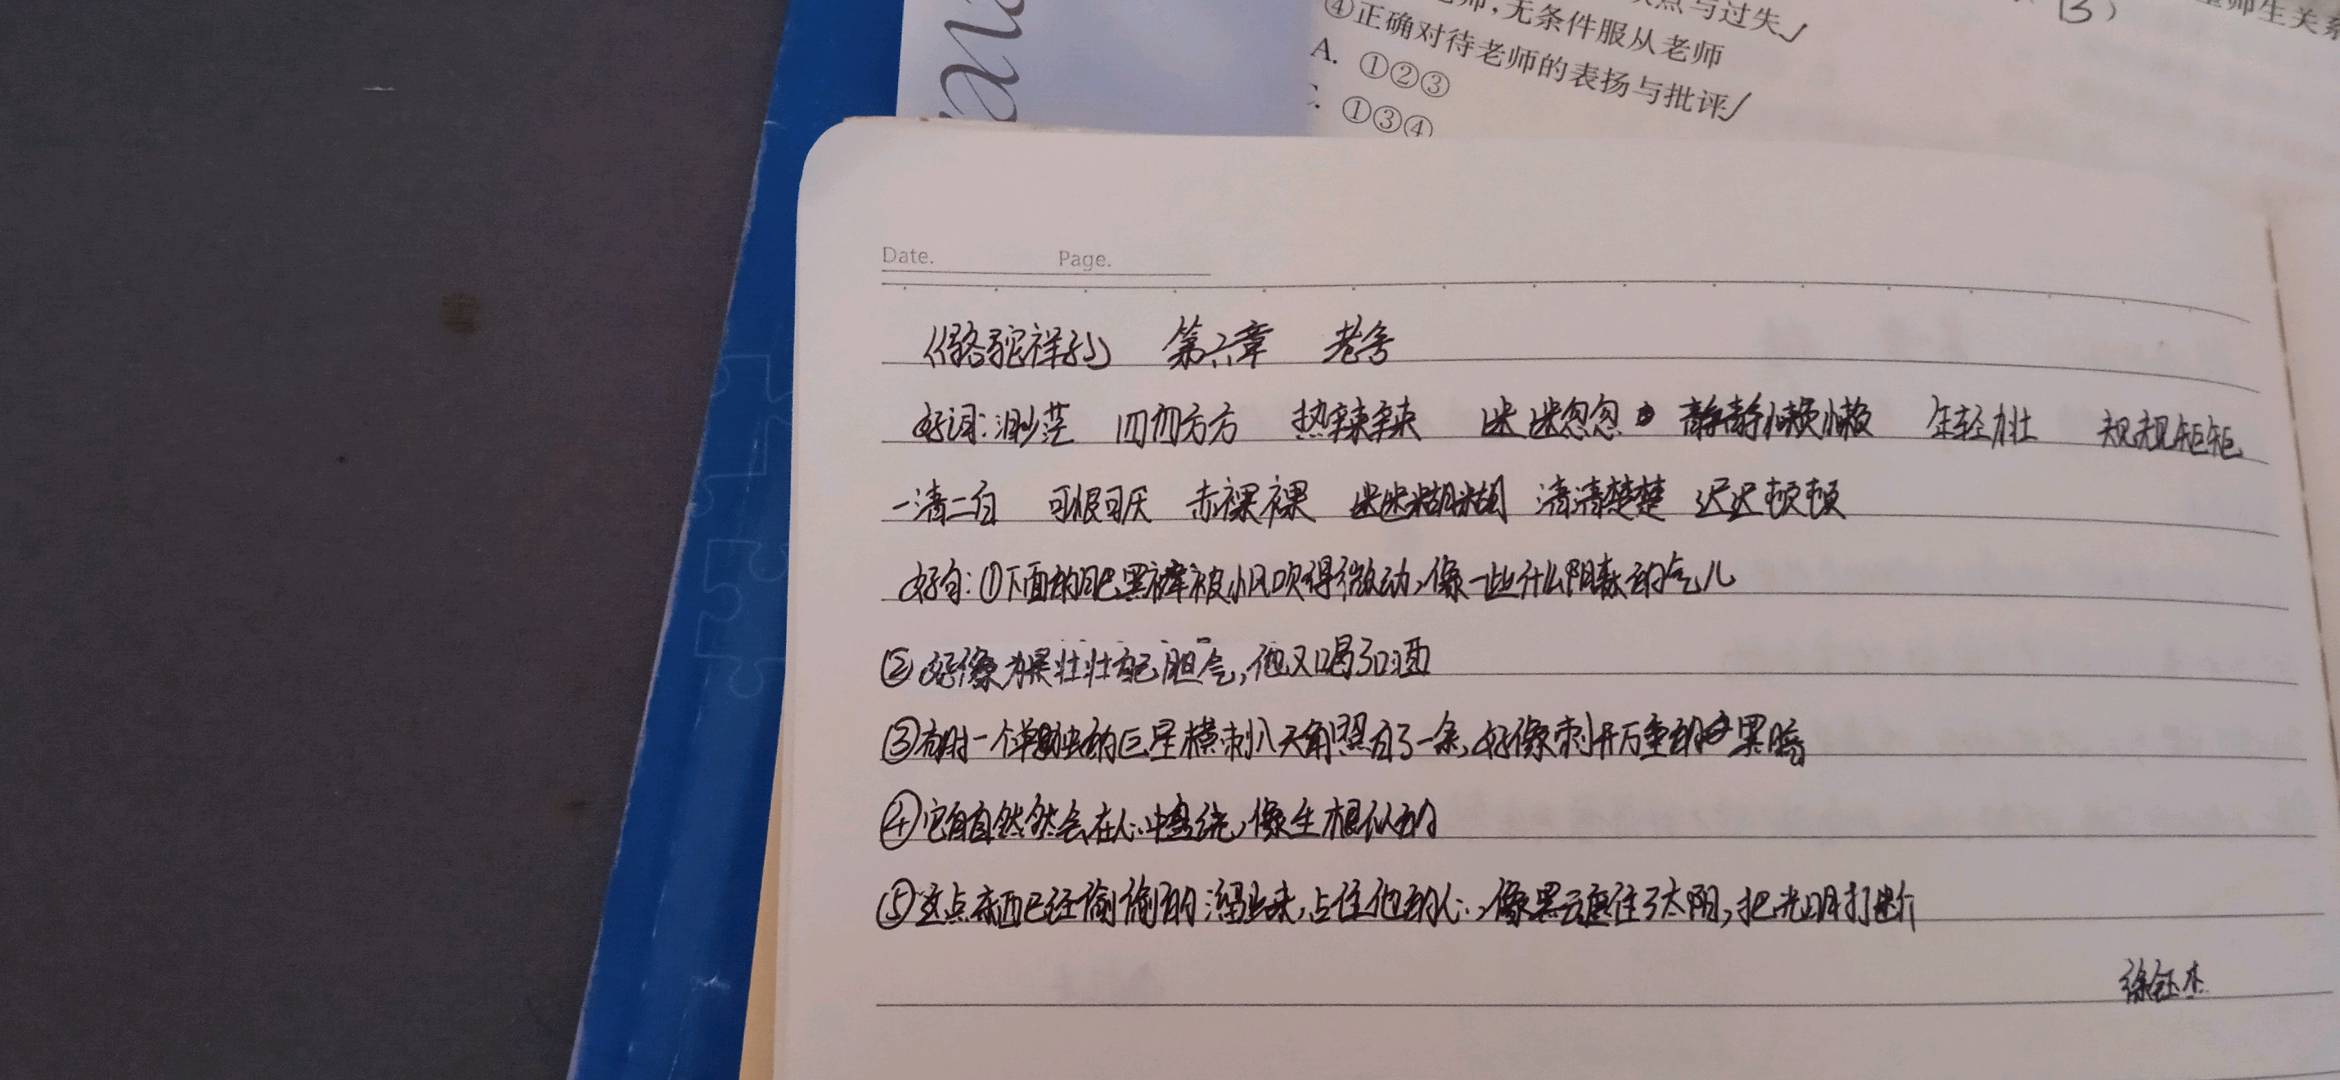 点与过失✓
师,无条件服从老师
④正确对待老师的表扬与批评✓
A. ①②③
C. ①③④
B)
师生关系
Date. Page.
《骆驼祥子》 第六章 老舍
好词:渺茫 四四方方 热辣辣 迷迷忽忽 静静懒懒 年轻力壮 规规矩矩
一清二白 可恨可厌 赤裸裸 迷迷糊糊 清清楚楚 迟迟顿顿
好句:①下面的肥黑裤被小风吹得微动,像一些什么阴森的气儿
②好像为是壮壮自己胆气,他又喝了口酒
③有时一个单独的巨星横刺入天角,照白了一条,好像刺开万重的黑暗
④它自自然然会在心中盘绕,像生根似的
⑤这点东西已经偷偷的溜出来,占住他的心,像黑云遮住了太阳,把光明打断
徐钰杰